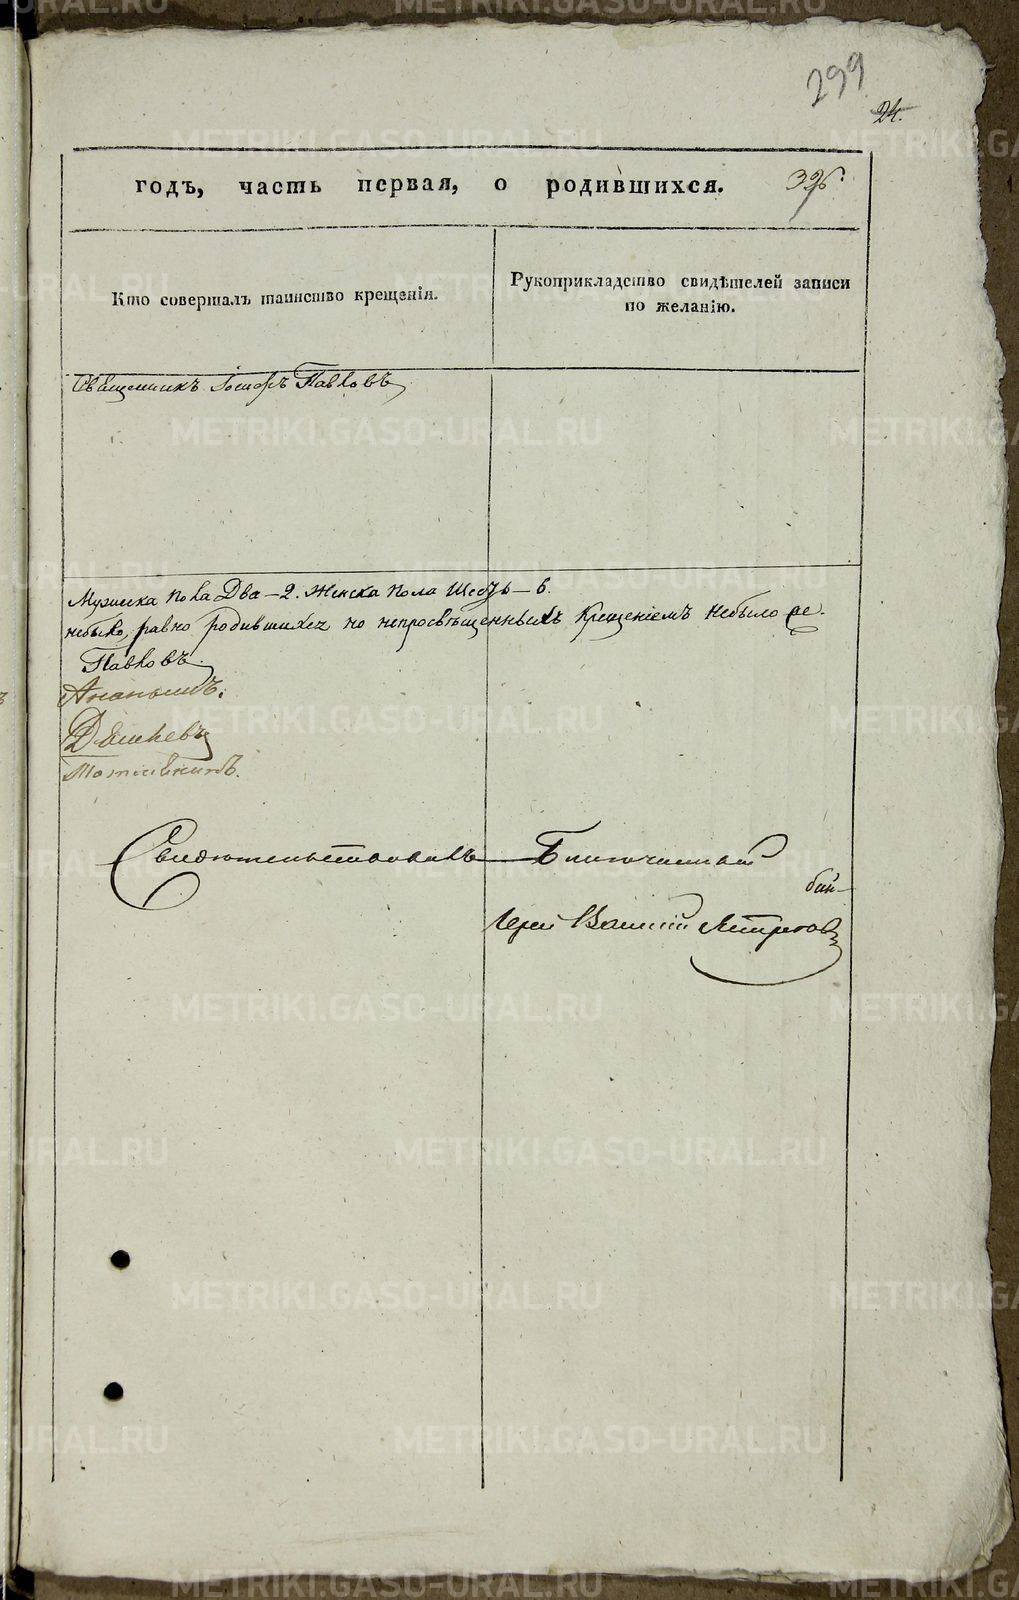 299
24.
годъ, часть первая, о родившихся. 326.
Кто совершалъ таинство крещенія.
Рукоприкладство свидѣтелей записи
по желанію.
Священникъ Павловъ
Мужеска пола Два - 2. Женска пола Шесть - 6.
небыло, равно родившихся но непросвѣщенныхъ Крещеніемъ небыло же.
Павловъ.
Свидѣтельствовалъ Благочинный
Іерей Василій
METRIKI.GASO-URAL.RU